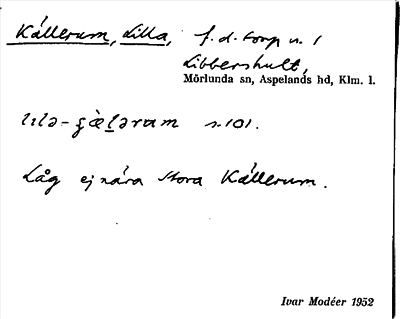 Källerum, Lilla, f. d. torp u. 1
Libbershult,
Mörlunda sn, Aspelands hd, Klm. l.
s. 101.
Låg ej nära Stora Källerum.
Ivar Modéer 1952